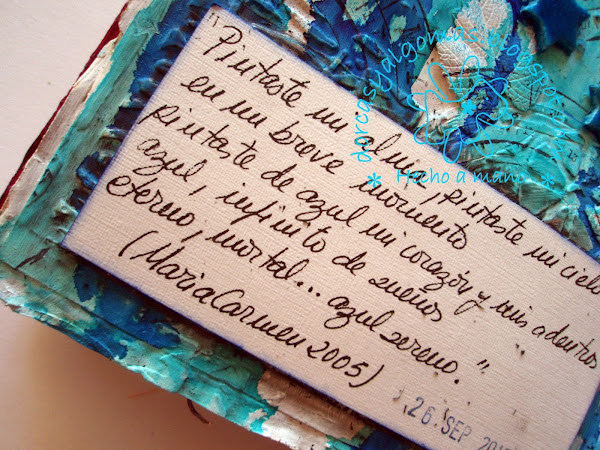 "Pintaste mi alma, pintaste mi cielo
en un breve momento
pintaste de azul mi corazón y mis adentros
azul, infinito de sueños
eterno, mortal... azul sereno."
(MariaCarmen 2005)
26 SEP
dorcasyalgomas.blogspot
* Hecho a mano *